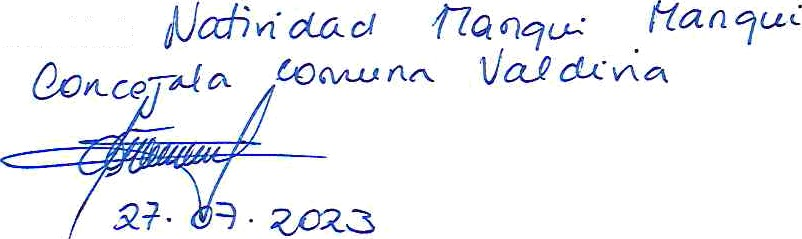 Natividad Manqui Manqui
Concejala comuna Valdivia
27.07.2023